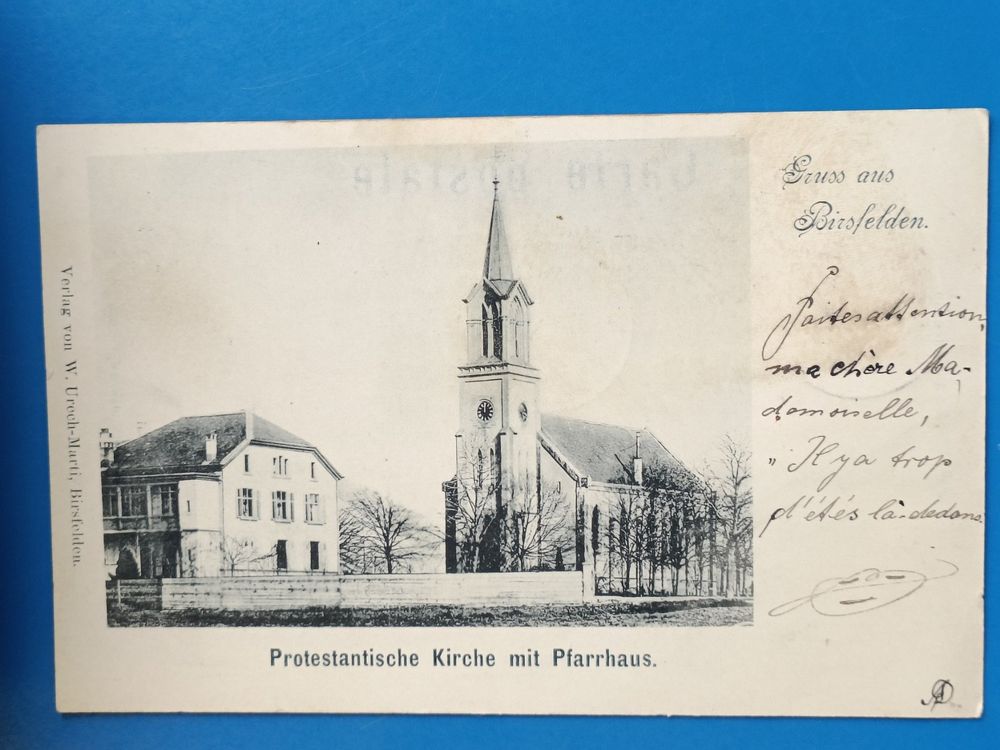 Gruss aus
Birsfelden.
Faites attention,
ma chère Ma-
demoiselle,
„Il y a trop
d'étés là-dedans.
Verlag von W. Urech-Marti, Birsfelden.
Protestantische Kirche mit Pfarrhaus.
Carte postale